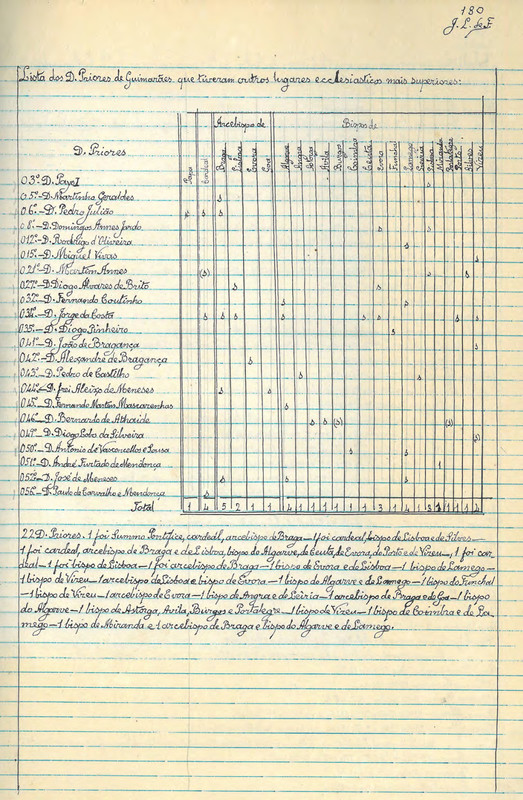 180
J. L. de F.
Lista dos D. Priores de Guimarães que tiveram outros lugares ecclesiasticos mais superiores:
Arcebispo de Bispos de
D. Priores Papa Cardeal Braga Lisboa Evora Goa Algarve Angra Avila Burgos Coimbra Ceuta Evora Funchal Lamego Leiria Lisboa Miranda Porto Silves Vizeu
O 3º D. Payo I
O 5º–D. Martinho Geraldes
O 6º–D. Pedro Julião
O 8º–D. Domingos Annes Jardo
O 12º–D. Rodrigo d'Oliveira
O 15º–D. Miguel Vivas
O 21º–D. Martim Annes
O 27º–D. Diogo Alvares de Brito
O 32º–D. Fernando Coutinho
O 34º–D. Jorge da Costa
O 35º–D. Diogo Pinheiro
O 41º–D. João de Bragança
O 42º–D. Alexandre de Bragança
O 43º–D. Pedro de Castilho
O 44º–D. frei Aleixo de Meneses
O 45º–D. Fernando Martins Mascarenhas
O 46º–D. Bernardo de Athaide
O 47º–D. Diogo Lobo da Silveira
O 50º–D. Antonio de Vasconcellos e Sousa
O 51º–D. André Furtado de Mendonça
O 52º–D. José de Meneses
O 56º–D. Paulo de Carvalho e Mendonça
Total 1 4 5 2 1 1 4 1 1 1
22 D. Priores. 1 foi Summo Pontifice, cardeal, arcebispo de Braga – 1 foi cardeal, bispo de Lisboa e de Silves –
1 foi cardeal, arcebispo de Braga e de Lisboa, bispo do Algarve, de Ceuta, de Evora, do Porto e de Vizeu – 1 foi car-
deal – 1 foi bispo de Lisboa – 1 foi arcebispo de Braga – 1 bispo de Evora e de Lisboa – 1 bispo de Lamego –
1 bispo de Vizeu – 1 arcebispo de Lisboa e bispo de Evora – 1 bispo do Algarve e de Lamego – 1 bispo do Funchal
– 1 bispo de Vizeu – 1 arcebispo de Evora – 1 bispo de Angra e de Leiria – 1 arcebispo de Braga e de Goa – 1 bispo
do Algarve – 1 bispo de Astorga, Avila, Burgos e Portalegre – 1 bispo de Vizeu – 1 bispo de Coimbra e de La-
mego – 1 bispo de Miranda e 1 arcebispo de Braga e bispo do Algarve e de Lamego.